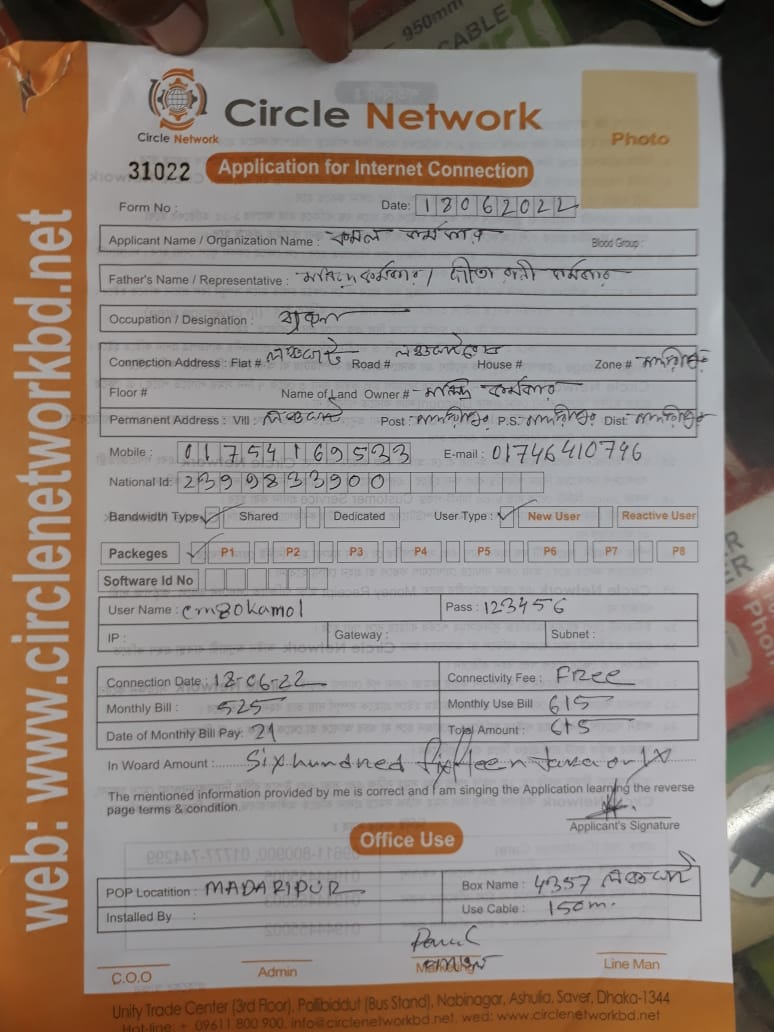 950mm
CABLE
Circle Network
Circle Network
Photo
31022 Application for Internet Connection
Form No : Date: 18062022
Applicant Name / Organization Name : কমল কর্মকার Blood Group :
Father's Name / Representative : কর্মকার / রানী কর্মকার
Occupation / Designation :
Connection Address : Flat # লঞ্চঘাট Road # House # Zone # মাদারীপুর
Floor # Name of Land Owner # কর্মকার
Permanent Address : Vill লঞ্চঘাট Post মাদারীপুর P.S. মাদারীপুর Dist. মাদারীপুর
Mobile : 01754169533 E-mail : 01746410796
National Id: 2399833900
Bandwidth Type Shared Dedicated User Type : New User Reactive User
Packeges P1 P2 P3 P4 P5 P6 P7 P8
Software Id No
User Name : cmgokamol Pass : 123456
IP : Gateway : Subnet :
Connection Date : 18-06-22 Connectivity Fee : FRee
Monthly Bill : 525 Monthly Use Bill 615
Date of Monthly Bill Pay: 21 Total Amount : 615
In Woard Amount : Six hundred fifteen taka only
The mentioned information provided by me is correct and I am singing the Application learning the reverse
page terms & condition.
Applicant's Signature
Office Use
POP Locatition : MADARIPUR Box Name : 4357 লঞ্চঘাট
Installed By : Use Cable : 150m.
C.O.O Admin Marketing Line Man
Unity Trade Center (3rd Floor), Pallibiddut (Bus Stand), Nabinagar, Ashulia, Saver, Dhaka-1344
Hot-line: + 09611 800 900, info@circlenetworkbd.net, wed: www.circlenetworkbd.net
web: www.circlenetworkbd.net